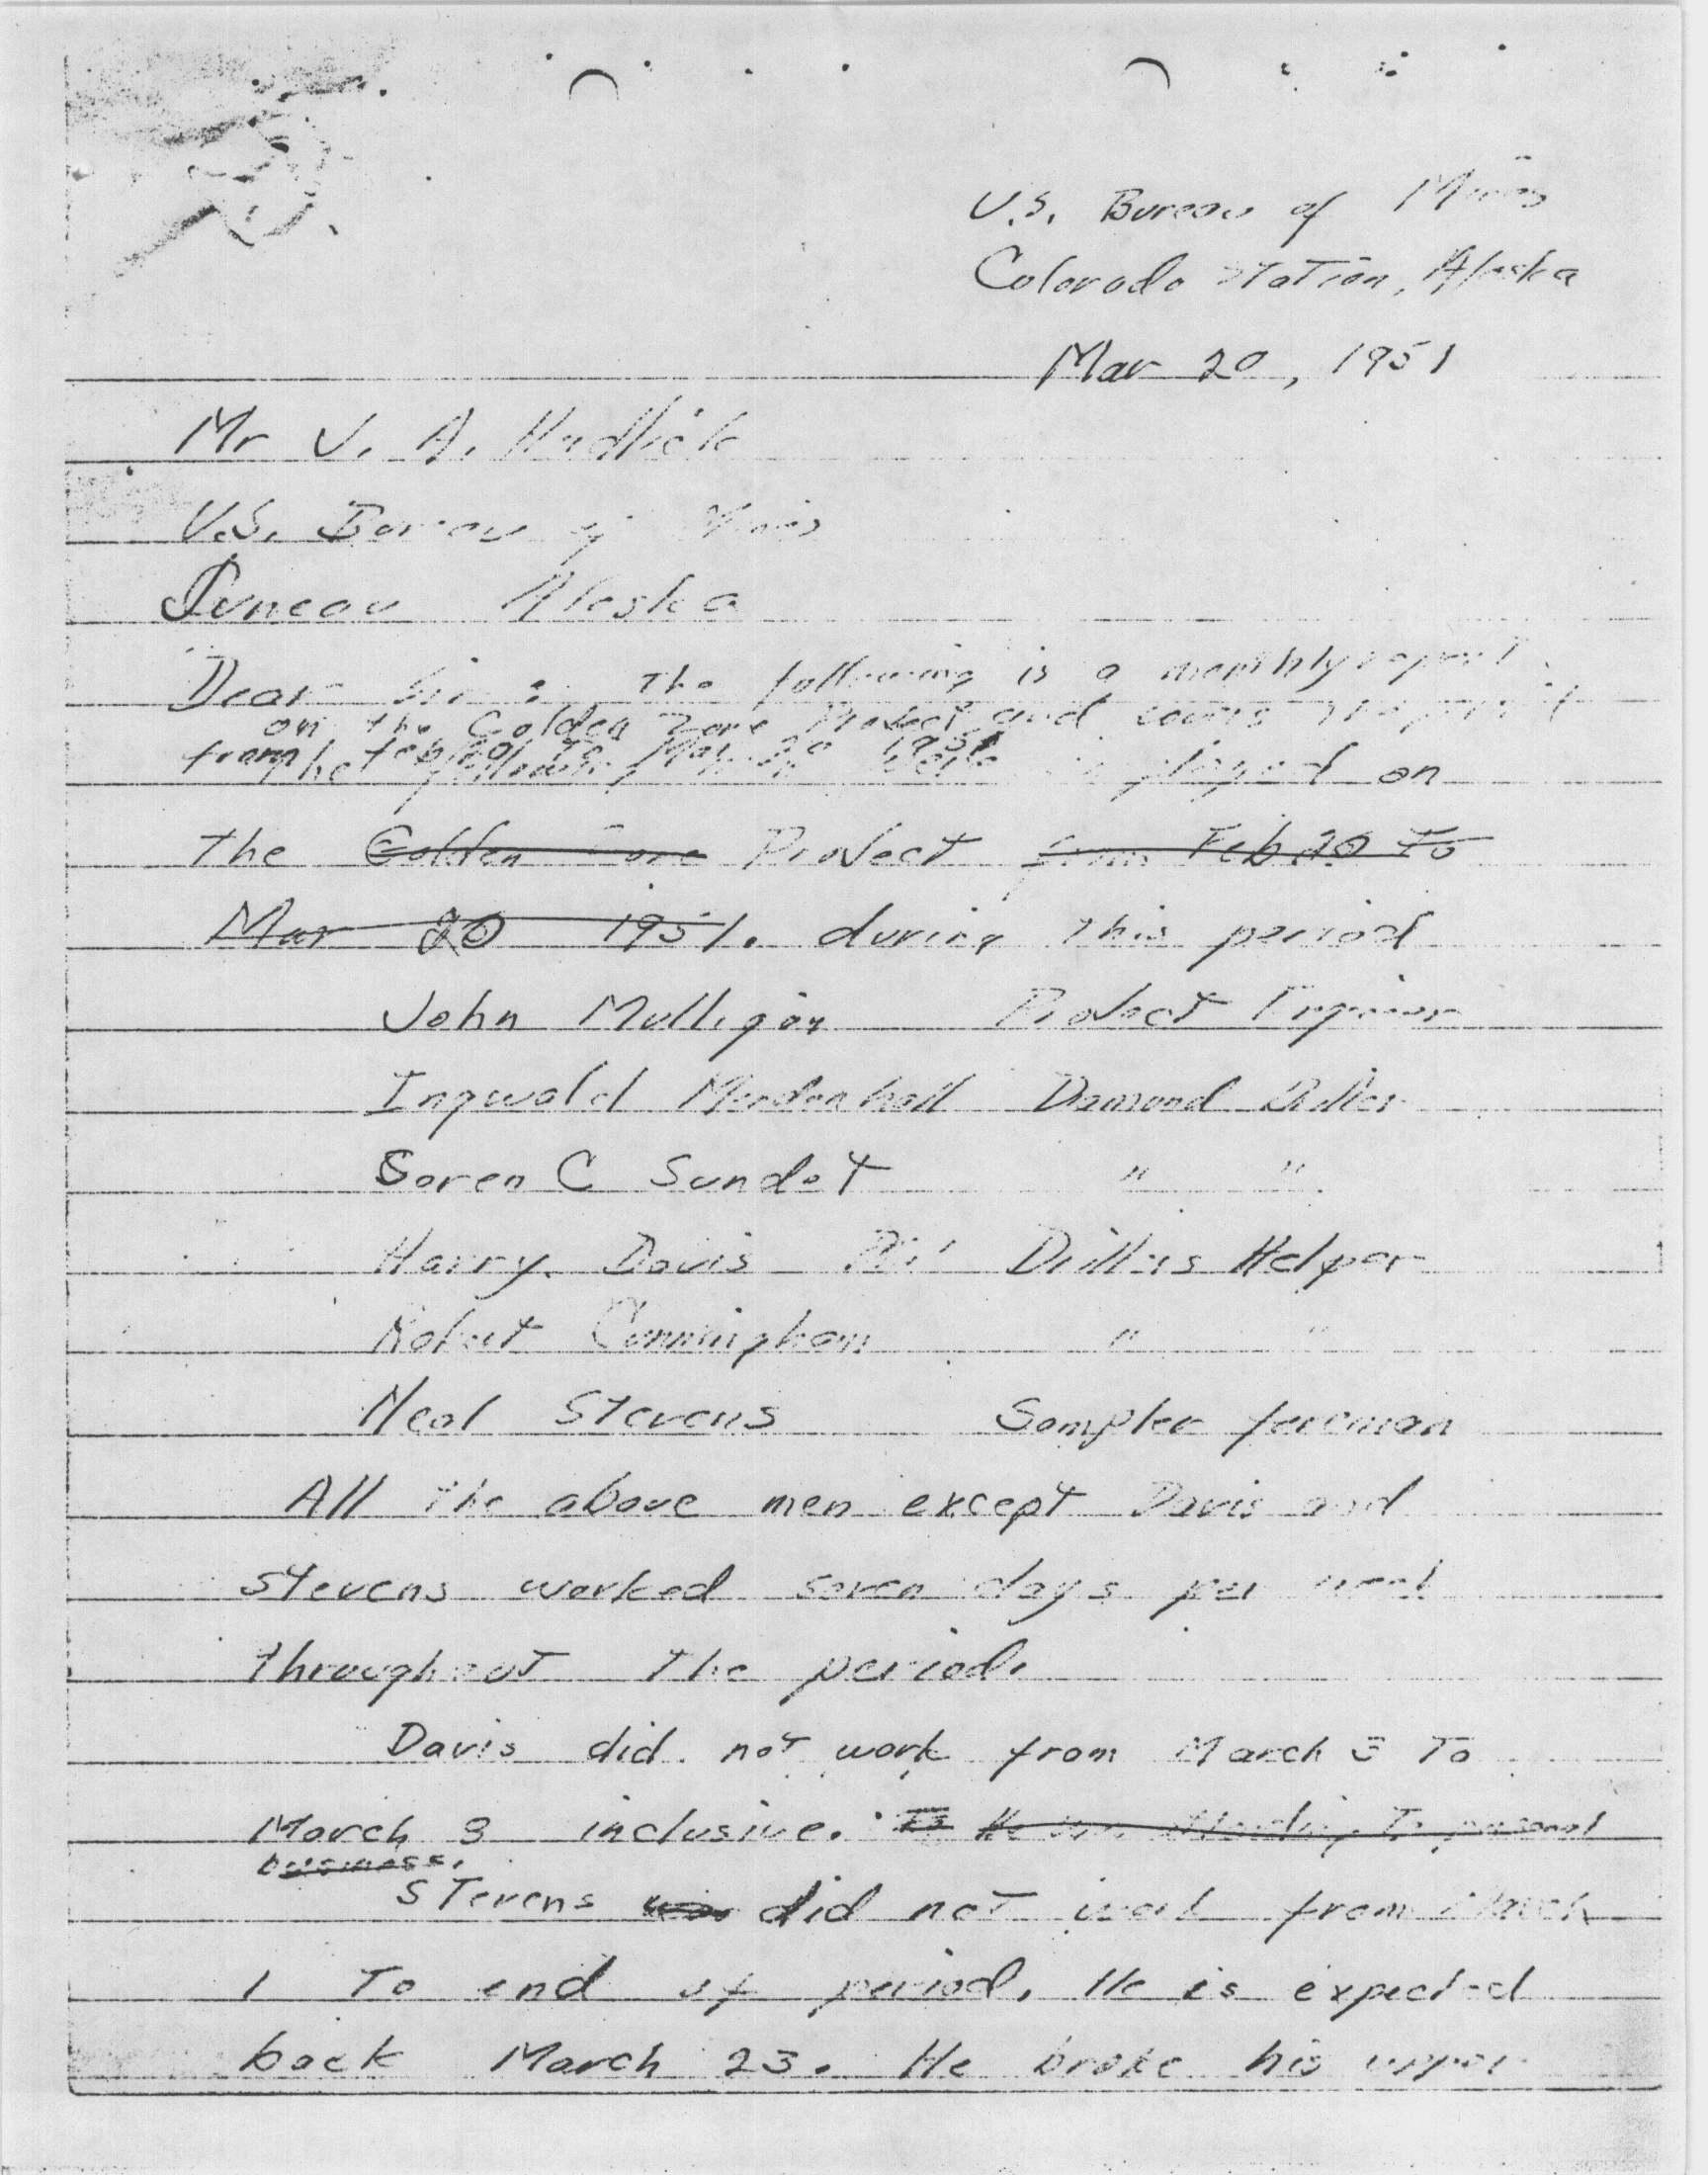 U.S. Bureau of Mines
Colorado Station, Alaska
Mar 20, 1951
Mr J. A. Hadlick
U.S. Bureau of Mines
Juneau Alaska
Dear Sir: The following is a monthly report
on the Golden Zone Project and covers the period
from Feb 20 to Mar 20 1951
The following men were employed on
the Golden Zone Project from Feb 20 to
Mar 20 1951. during this period
John Mulligan Project Engineer
Ingwald Mendenhall Diamond Driller
Soren C Sundot " "
Harry Davis Drillers Helper
Robert Cunningham " "
Neal Stevens Sampler foreman
All the above men except Davis and
Stevens worked seven days per week
throughout the period.
Davis did not work from March 3 To
March 8 inclusive. He was attending To personal
business.
Stevens was did not work from March
1 To end of period. He is expected
back March 23. He broke his upper